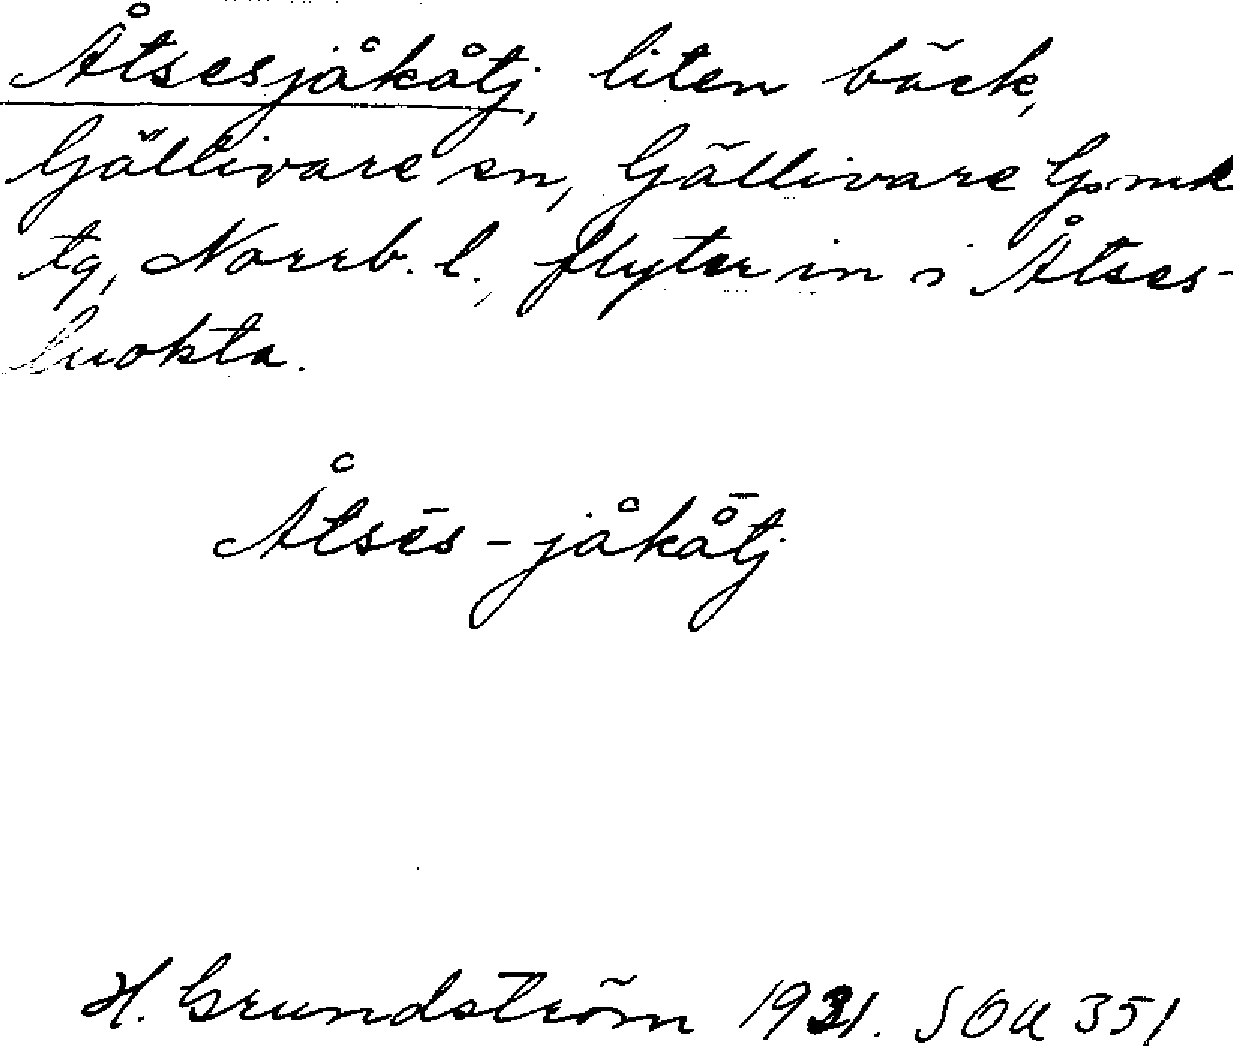 Åtsesjåkåtj, liten bäck,
Gällivare sn, Gällivare
tg, Norrb. l., flyter in i Åtses-
luokta.
Åtsēs-jåkå̄tj
H. Grundström 1931. SOU 351